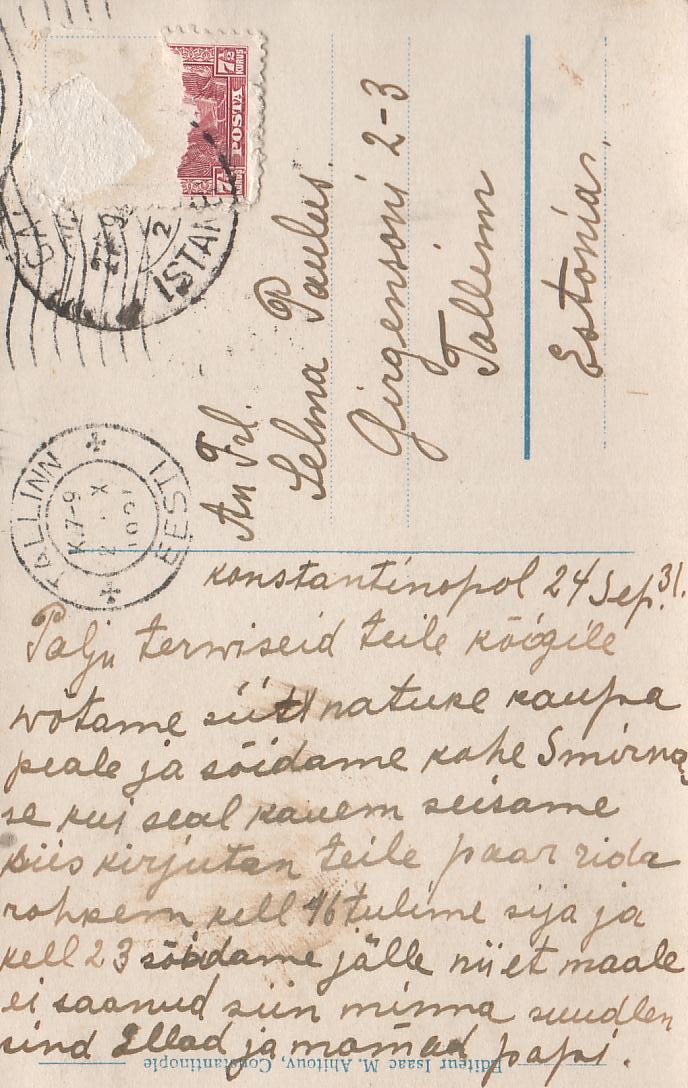 7½
KURUS
POSTA
7½
KURUS
ISTAN
2
An Frl.
Selma Paulus.
Girgensoni 2-3
Tallinn
Estonia.
TALLINN
EESTI
X.7-9
2. X
konstantinopol 24 Sep. 31.
Palju terwiseid teile kõigile
wõtame siit natuke kaupa
peale ja sõidame kohe Smirna
se kui seal kauem seisame
siis kirjutan teile paar rida
rohkem kell 16 tulime sija ja
kell 23 sõidame jälle nii et maale
ei saanud siin minna suudlen
sind Ellad ja mamad papi.
Editeur Isaac M. Ahitouv, Constantinople